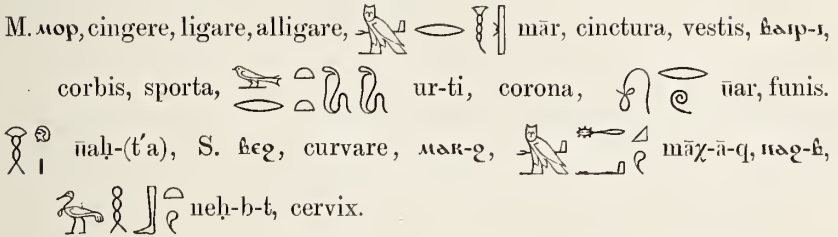 M. ⲙⲟⲣ, cingere, ligare, alligare, mār, cinctura, vestis, ⲃⲁⲓⲣ-ⲓ,
corbis, sporta, ur-ti, corona, ūar, funis.
ūaḥ-(t′a), S. ⲃⲉϩ, curvare, ⲙⲁⲕ-ϩ, māχ-ā-q, ⲛⲁϩ-ⲃ,
neḥ-b-t, cervix.